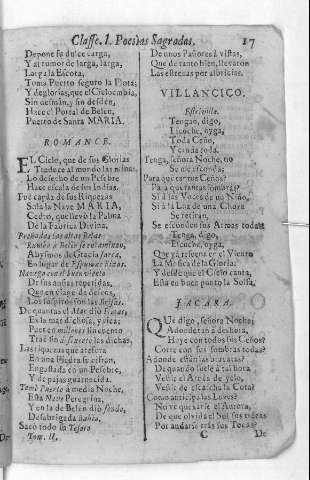 Classe. I. Poesias Sagradas. 17
Depone su dulce carga,
Y al rumor de larga, larga,
Larga la Escota,
Toma Puerto seguro la Flota;
Y de glorias, que el Cielo embia,
Sin desmàn, y sin desdèn,
Hace el Portal de Belèn,
Puerto de Santa MARIA.
ROMANCE.
EL Cielo, que de sus Glorias
Traduce al mundo las minas,
Lo desecho de un Pesebre
Hace escala de sus Indias.
Fue cargada de sus Riquezas
Sola la Nave MARIA,
Cedro, que llevò la Palma
De la Fabrica Divina,
Rumbo à Belèn se encaminan,
Abysmos de Gracia
En lugar de Espumas
Navega con el buen viento
De sus ansias repetidas,
Que en clave de
Los suspiros son las Brisas.
De quantas el Mar diò Flotas,
Es la mas dichosa, y rica;
Pues en millones sin cuento
Trae sin las dichas.
Las riquezas que atesora
En una Piedra se cifran,
Engastada en un Pesebre,
Y de pajas guarnecida.
Tomò Puerto à media Noche,
Esta Nave Peregrina,
Y en la de Belèn diò fondo,
Desabrigada Bahia,
Sacò todo su Tesoro
Tom. II.
De unos Pañores à vistas,
Que de tanto bien, llevaron
Las estrenas por albricias.
VILLANCICO.
Estrivillo.
Tengan, digo,
Escuche, oyga,
Toda Ceño,
Tenga, señora Noche, no
Se me esconda;
Para que son los Ceños?
Para que tantas sombras?
Si à las Voces de un Niño,
Si à la Luz de una Choza
Se retiran,
Se esconden sus Armas todas
Tenga, digo,
Escuche, oyga,
Que yà resuena en el Viento
La Musica de la Gloria:
Y desde que el Cielo canta,
Està en buen punto la Solfa.
JACARA.
QUè digo, señora Noche,
Adonde tan à deshora,
Huye con todos sus Ceños?
Corre con sus sombras todas?
Adonde están las bravatas?
De quando suele à tal hora
Vestir el Arnès de yelo,
Vestir de escarcha la Cota?
Como anticipa las Luces?
No ve que rie el Aurora,
De que olvida el Sol sus
Por andarse tràs sus Tocas?
C De